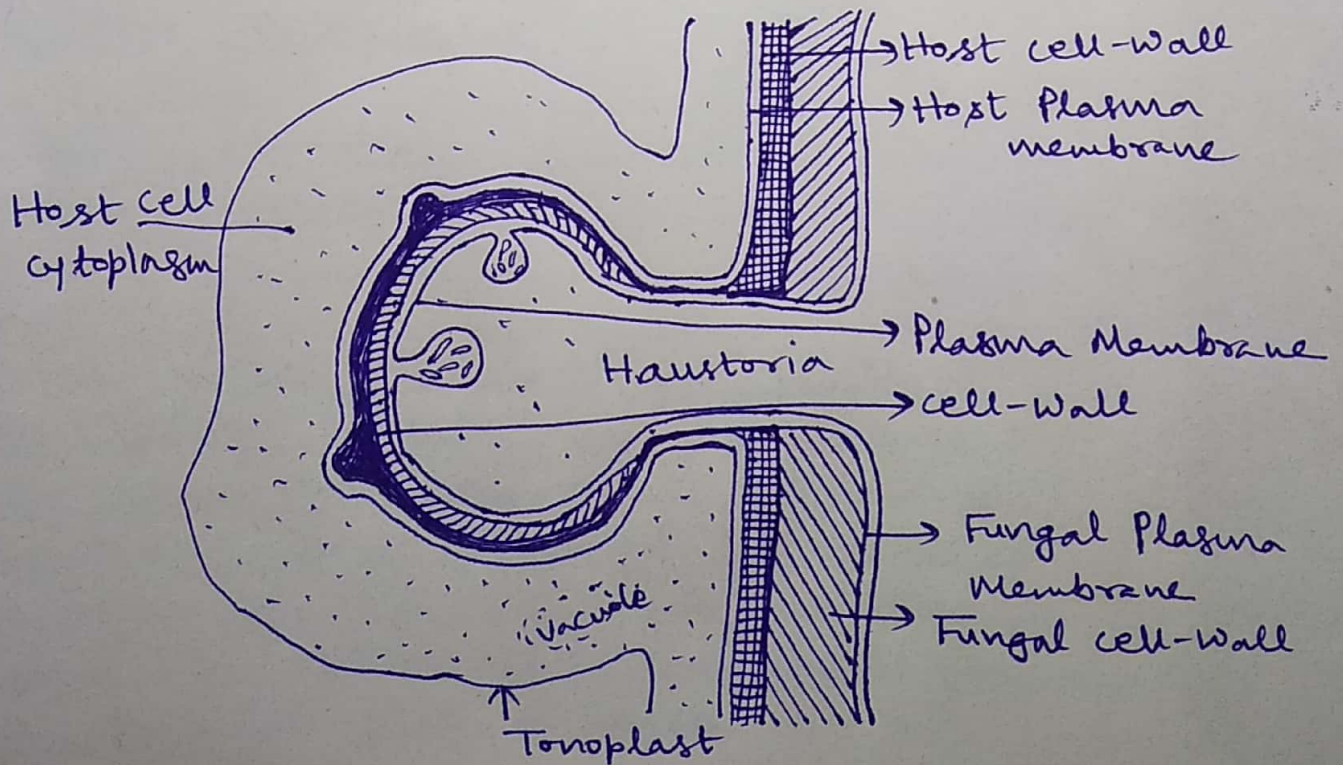 Host cell-wall
Host Plasma
membrane
Host cell
cytoplasm
Plasma Membrane
Haustoria
cell-wall
Fungal Plasma
Membrane
Vacuole
Fungal cell-wall
Tonoplast